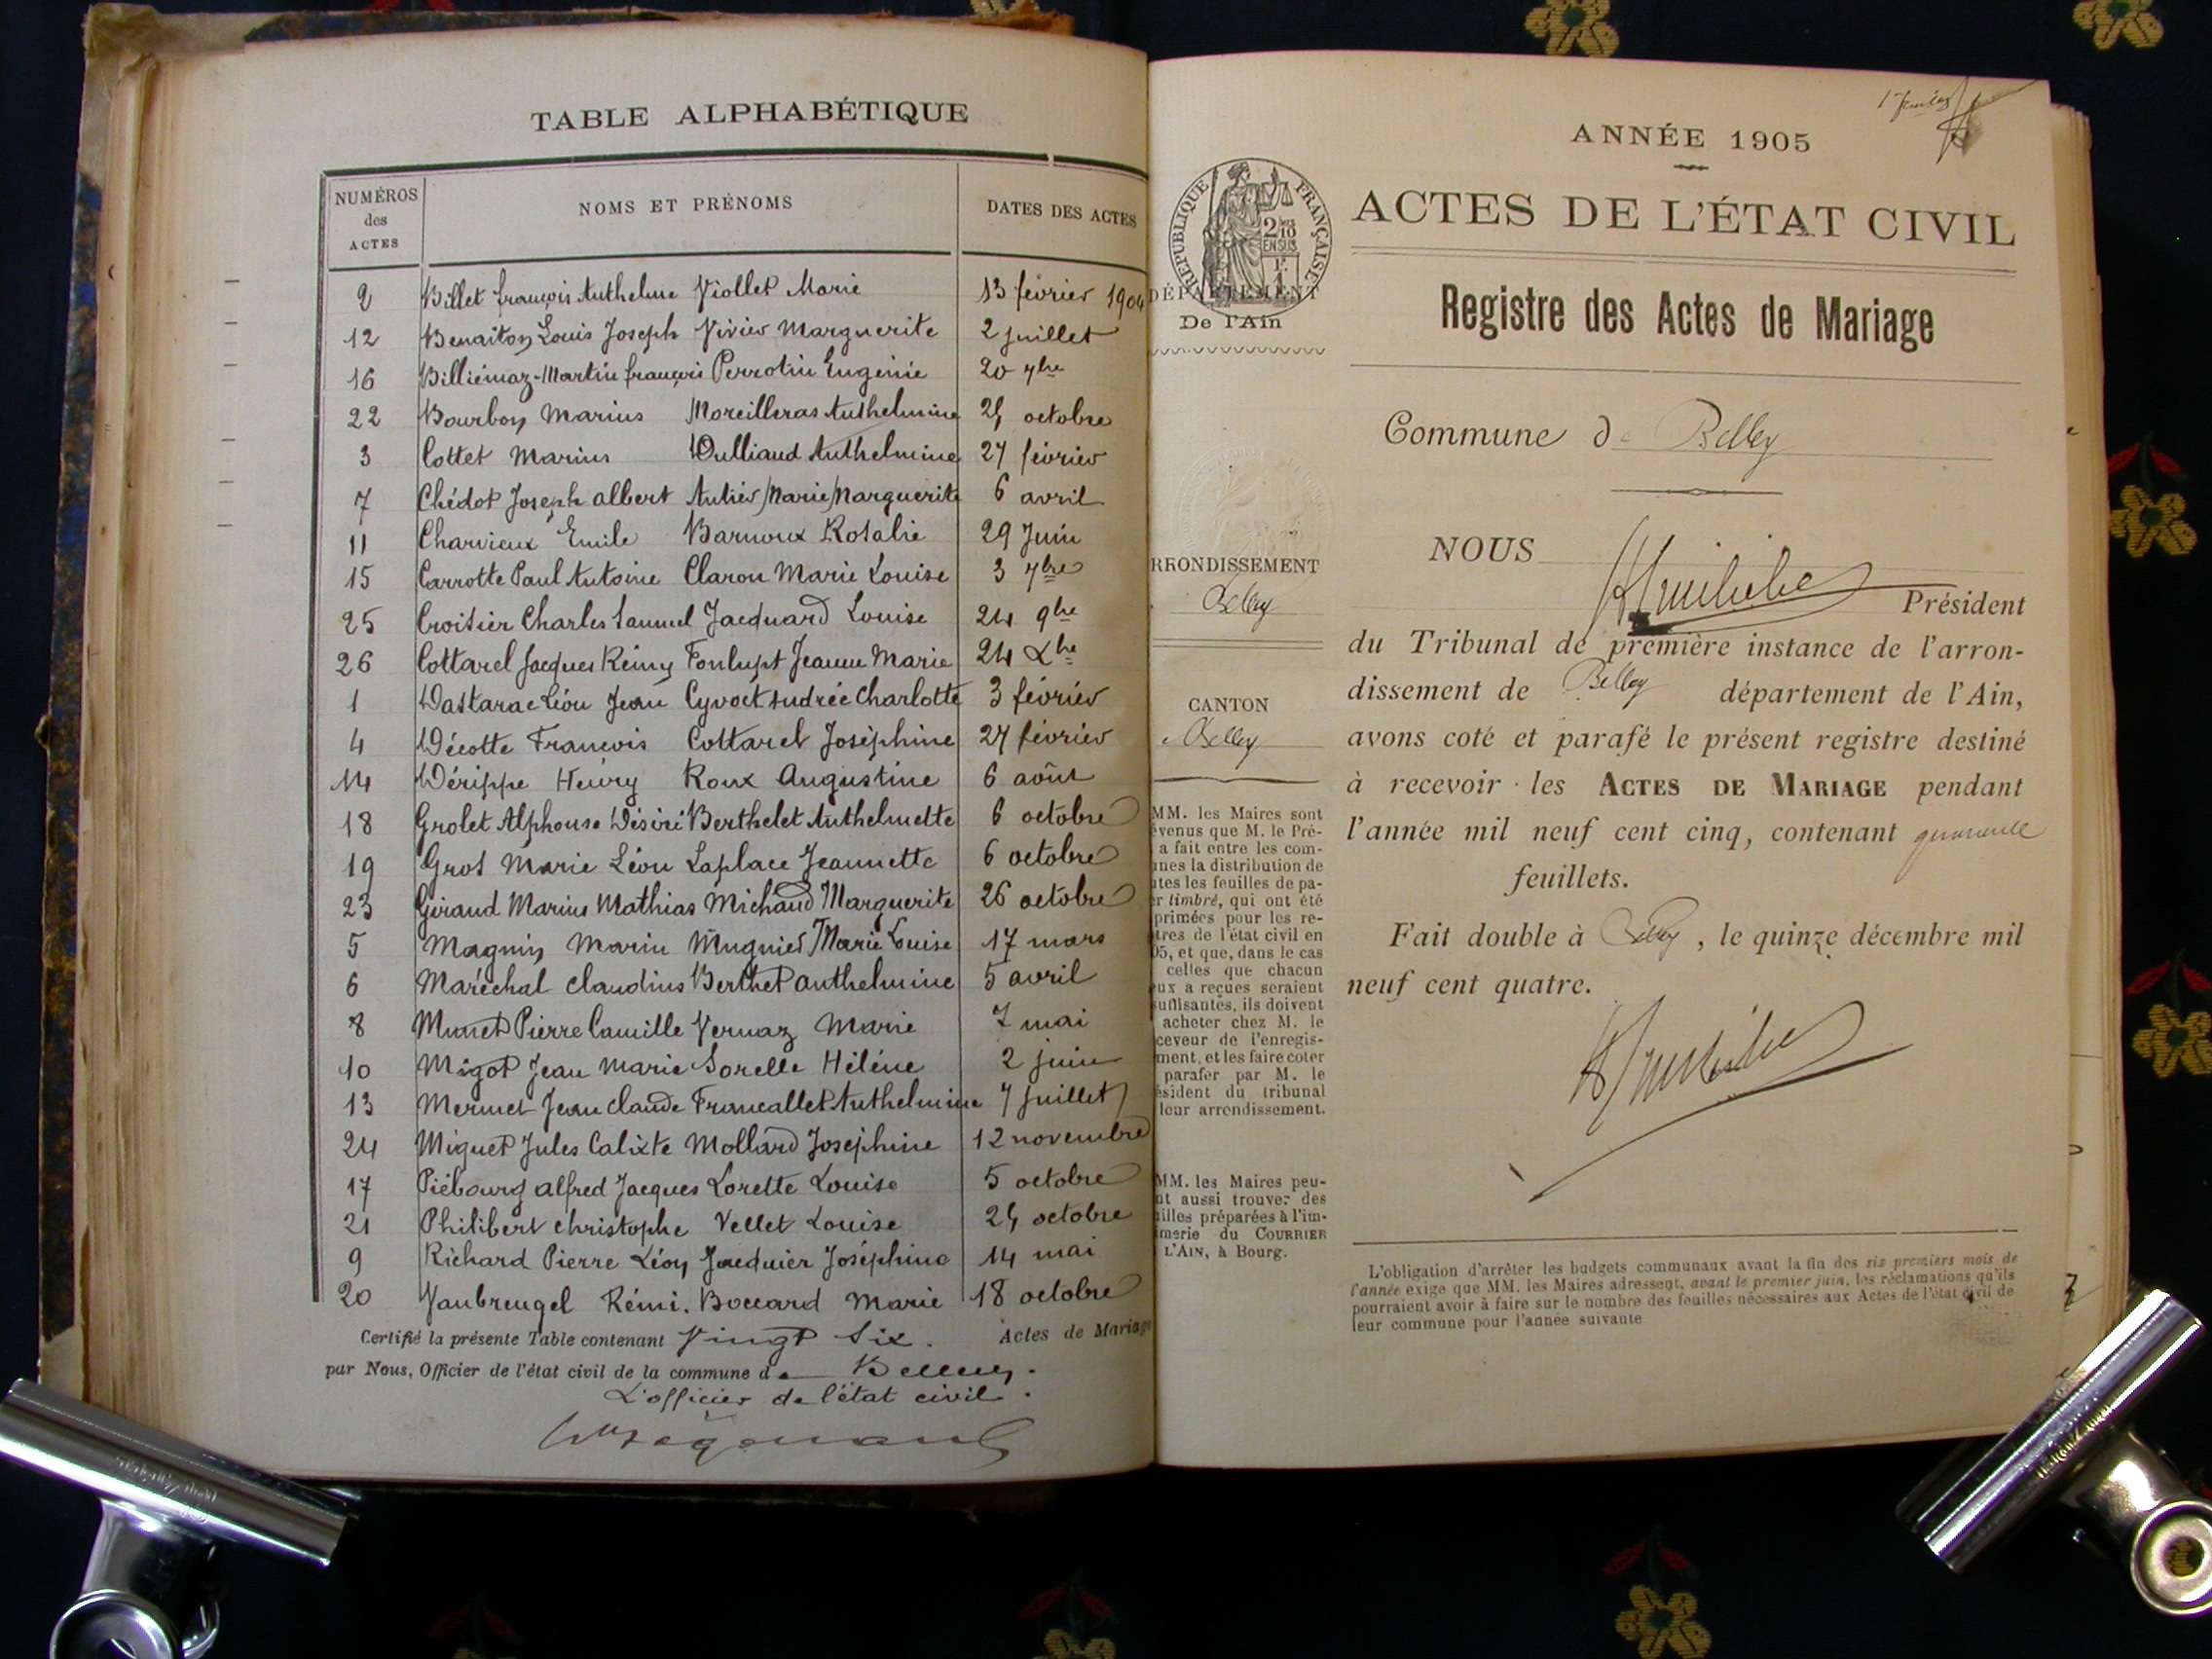 TABLE ALPHABÉTIQUE
NUMÉROS des ACTES
NOMS ET PRÉNOMS
DATES DES ACTES
2 Billet françois Anthelme Viollet Marie 13 février 1904
12 Benaiton Louis Joseph Vivier Marguerite 2 juillet
16 Billiémaz-Martin françois Perrotin Eugénie 20 7bre
22 Bourbon Marius Moreilleras Anthelmine 24 octobre
3 Cottet Marius Dulliaud Anthelmine 27 février
7 Chédot Joseph albert Autier Marie Marguerite 6 avril
11 Charvieux Emile Barnoux Rosalie 29 Juin
15 Carrotte Paul Antoine Claron Marie Louise 3 7bre
25 Croisier Charles Samuel Jacquard Louise 24 9bre
26 Cottarel Jacques Rémy Fonlupt Jeanne Marie 24 Xbre
1 Dastarac Léon Jean Cyvoct Andrée Charlotte 3 février
4 Décotte François Cottarel Joséphine 27 février
14 Dérippe Henry Roux Augustine 6 août
18 Grolet Alphonse Désiré Berthelet Anthelmette 6 octobre
19 Gros Marie Léon Laplace Jeannette 6 octobre
23 Géraud Marius Mathias Michaud Marguerite 26 octobre
5 Magnin Marin Mugnier Marie Louise 17 mars
6 Maréchal Claudius Berthet anthelmine 5 avril
8 Munet Pierre Camille Vernaz Marie 7 mai
10 Migot Jean Marie Sorelle Hélène 2 juin
13 Mermet Jean Claude Francallet Anthelmine 7 juillet
24 Miguet Jules Calixte Mollard Joséphine 12 novembre
17 Piébourg alfred Jacques Lorette Louise 5 octobre
21 Philibert Christophe Vellet Louise 24 octobre
9 Richard Pierre Léon Jacquier Joséphine 14 mai
20 Vanbreugel Rémi. Boccard Marie 18 octobre
Certifié la présente Table contenant Vingt Six. Actes de Mariage
par Nous, Officier de l'état civil de la commune de Belley.
L'officier de l'état civil.
ANNÉE 1905
ACTES DE L'ÉTAT CIVIL
Registre des Actes de Mariage
RÉPUBLIQUE FRANÇAISE
2/10 EN SUS
DÉPARTEMENT
De l'Ain
RRONDISSEMENT
Belley
CANTON
Belley
MM. les Maires sont
évenus que M. le Pré-
a fait entre les com-
nes la distribution de
tes les feuilles de pa-
r timbré, qui ont été
primées pour les re-
tres de l'état civil en
05, et que, dans le cas
celles que chacun
ux a reçues seraient
suffisantes, ils doivent
acheter chez M. le
ceveur de l'enregis-
ment, et les faire coter
parafer par M. le
ésident du tribunal
leur arrondissement.
MM. les Maires peu-
nt aussi trouver des
illes préparées à l'im-
merie du COURRIER
L'AIN, à Bourg.
Commune de Belley
NOUS
Président
du Tribunal de première instance de l'arron-
dissement de Belley département de l'Ain,
avons coté et parafé le présent registre destiné
à recevoir les ACTES DE MARIAGE pendant
l'année mil neuf cent cinq, contenant quarante
feuillets.
Fait double à Belley, le quinze décembre mil
neuf cent quatre.
L'obligation d'arrêter les budgets communaux avant la fin des six premiers mois de
l'année exige que MM. les Maires adressent, avant le premier juin, les réclamations qu'ils
pourraient avoir à faire sur le nombre des feuilles nécessaires aux Actes de l'état civil de
leur commune pour l'année suivante